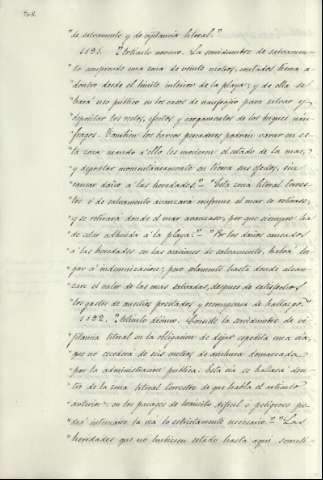 "de salvamento y de vigilancia litoral."
1131. "Artículo noveno. La servidumbre de salvamen-
"to comprende una zona de veinte metros, contados tierra a-
"dentro desde el límite interior de la playa; y de ella se
"hará uso público en los casos de naufragio para salvar y
"depositar los restos, efectos y cargamentos de los buques náu-
"fragos. También los barcos pescadores podrán varar en es-
"ta zona cuando á ello les moviere el estado de la mar,
"y depositar momentáneamente en tierra sus efectos, sin
"causar daño á las heredades." "Esta zona litoral terres-
"tre ó de salvamento avanzará conforme el mar se retirare,
"y se retirará donde el mar avanzare, por que siempre ha
"de estar adherida á la playa." "Por los daños causados
"á las heredades en las ocasiones de salvamento, habrá lu-
"gar á indemnizaciones; pero solamente hasta donde alcan-
"zare el valor de las cosas salvadas, despues de satisfechos
"los gastos de auxilios prestados y recompensas de hallazgo."
1132. "Artículo décimo. Consiste la servidumbre de vi-
"gilancia litoral en la obligacion de dejar expedita una via,
"que no excederá de seis metros de anchura demarcada
"por la administracion pública. Esta via se hallará den-
"tro de la zona litoral terrestre de que habla el artículo
"anterior. En los parages de tránsito difícil ó peligroso po-
"drá internarse la via lo estrictamente necesario." "Las
"heredades que no hubieren estado hasta aquí someti-